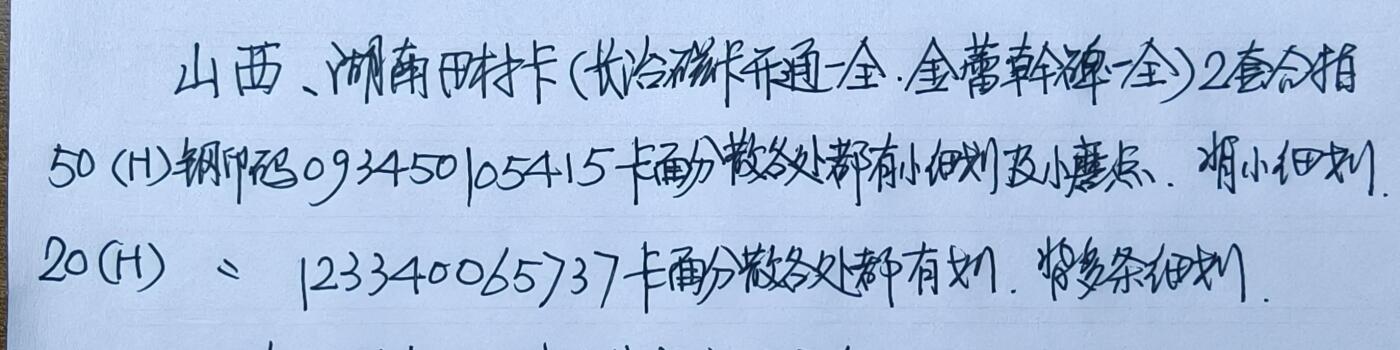 山西、湖南田村卡(长治磁卡开通一全.金蕾幹碑一全)2套合指
50(H)钢印码093450105415卡面分散各处都有小细划及小磨点.背小细划.
20(H) 〃 123340065737卡面分散各处都有划.背多条细划.